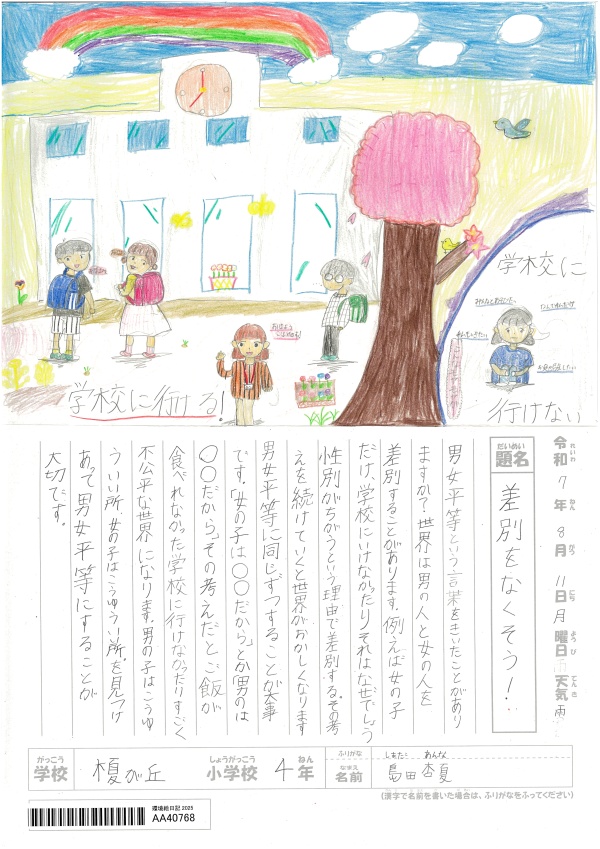 学校に行ける!
おはようございます!
学校に
みんなとあそびたい
べんきょうしたい
行けない
令和7年8月11日月曜日 天気 雨
れいわ ねん がつ にち ようび てんき
だいめい
題名
差別をなくそう!
男女平等という言葉をきいたことがあり
ますか?世界は男の人と女の人を
差別することがあります。例えば女の子
だけ、学校にいけなかったり。それはなぜでしょう
性別がちがうという理由で差別する。その考
えを続けていくと世界がおかしくなります
男女平等に同じずつすることが大事
です。「女の子は〇〇だから」とか「男のは
〇〇だから」その考えだとご飯が
食べれなかった学校に行けなかったりすごく
不公平な世界になります。男の子はこうゆ
ういい所、女の子はこうゆういい所を見つけ
あって男女平等にすることが
大切です。
がっこう
学校
榎が丘
しょうがっこう
小学校
4
ねん
年
ふりがな
しまだ あんな
なまえ
名前
島田 杏夏
(漢字で名前を書いた場合は、ふりがなをふってください)
環境絵日記 2025
AA40768